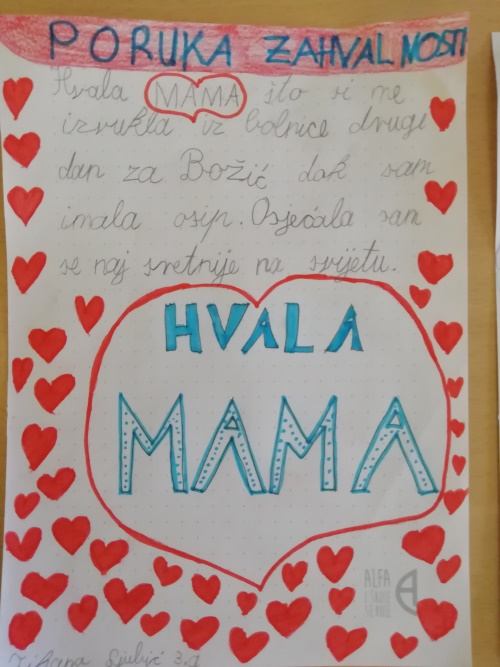 PORUKA ZAHVALNOSTI
Hvala MAMA što si me
izvukla iz bolnice drugi
dan za Božić dok sam
imala osip. Osjećala sam
se naj sretnije na svijetu.
HVALA
MAMA
ALFA
3.a